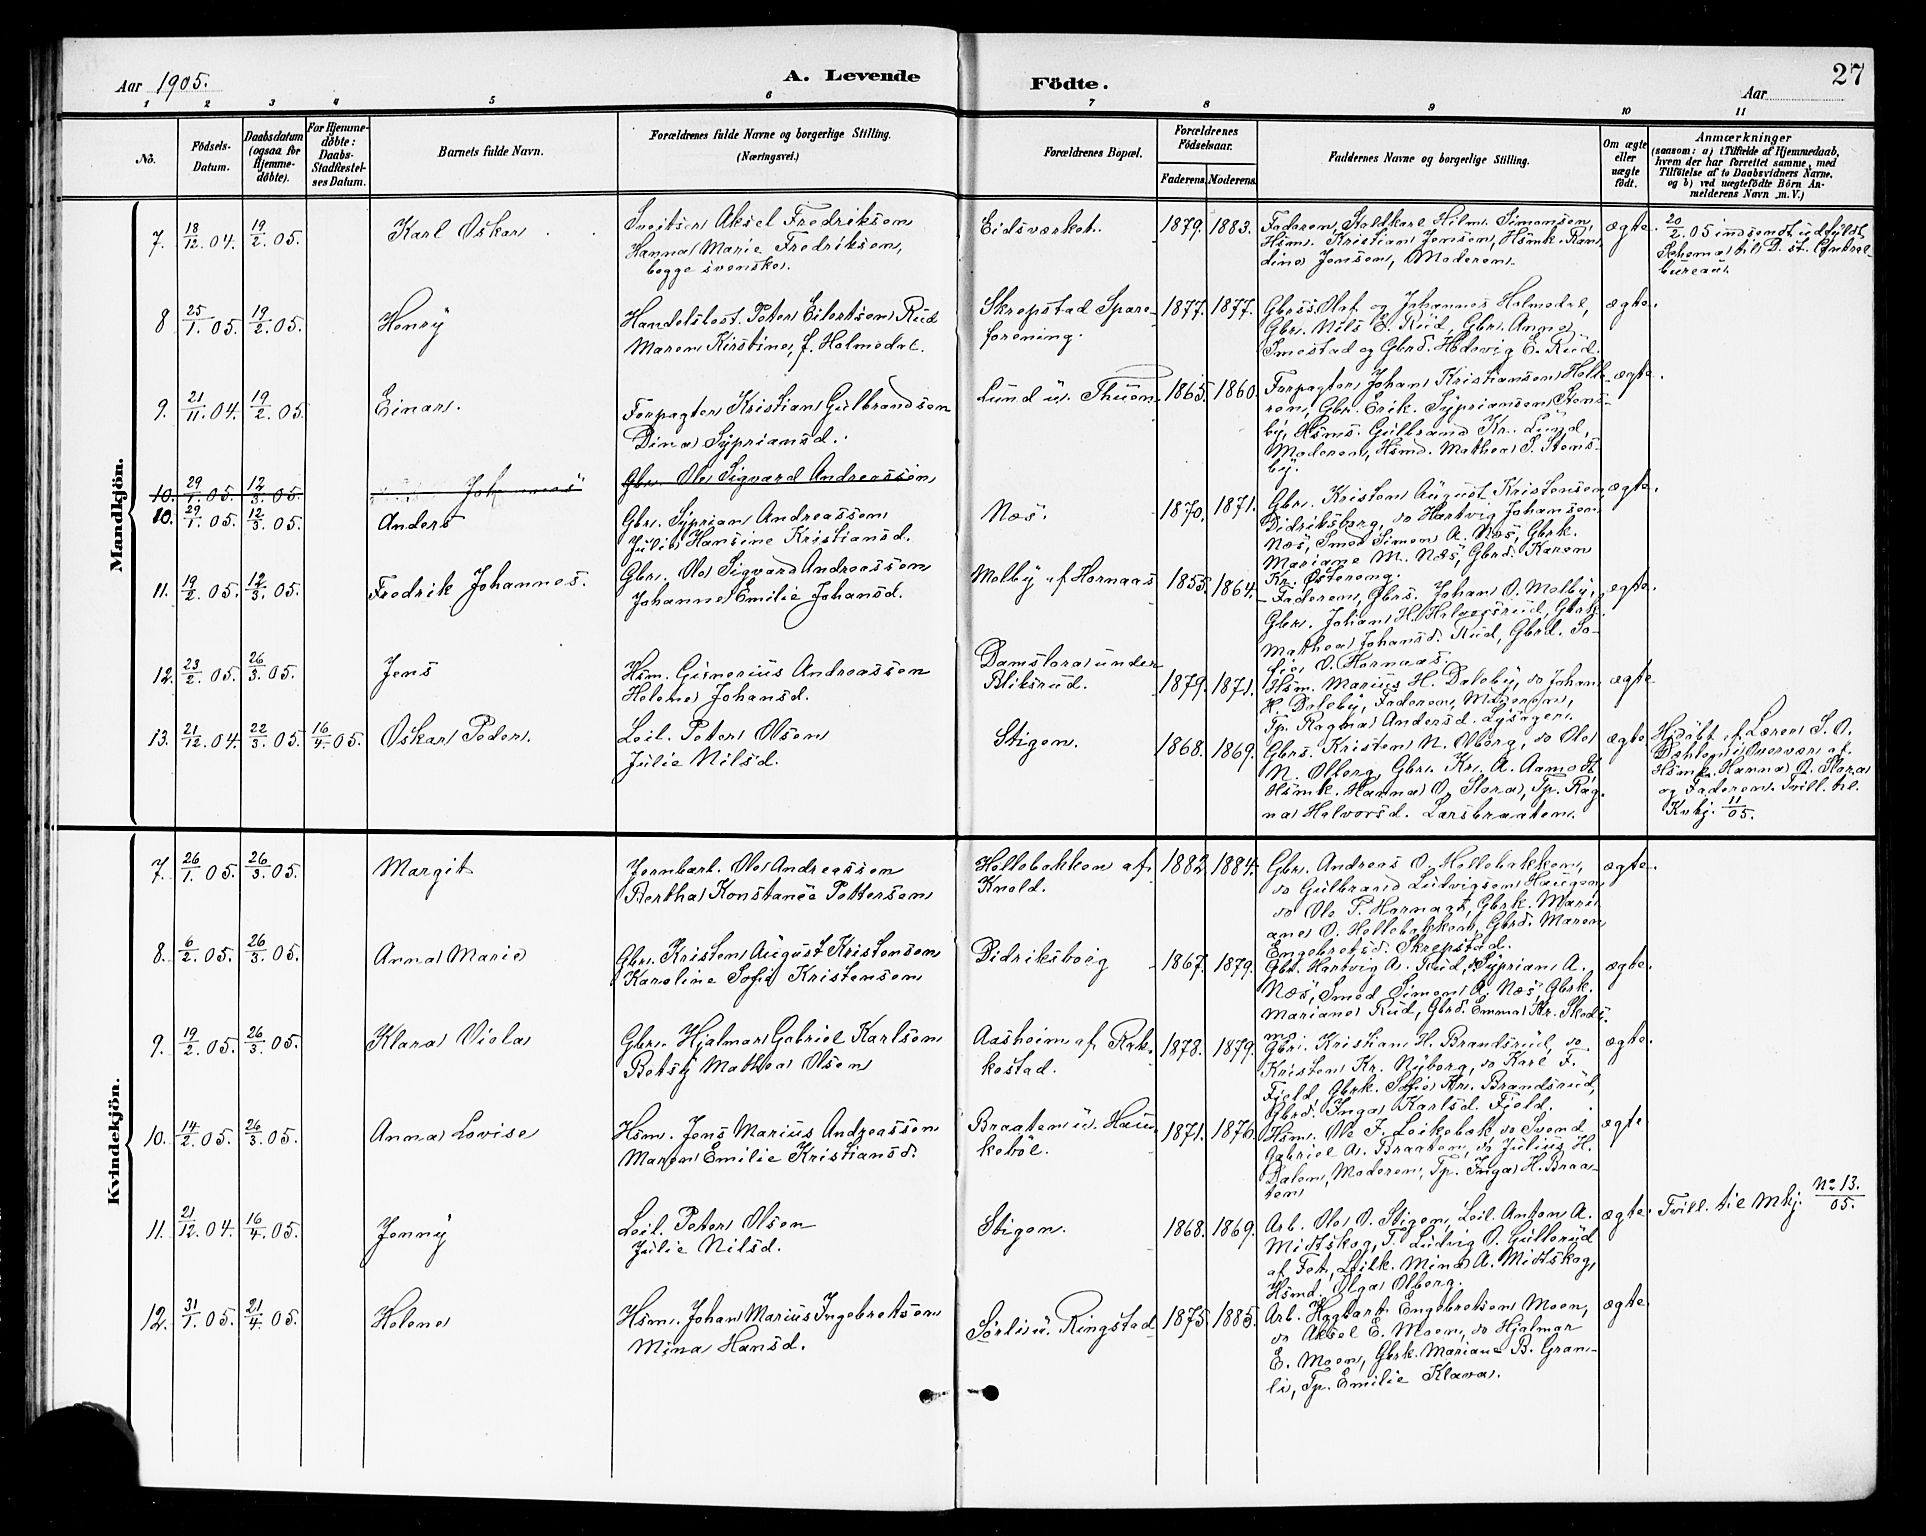 Aar 1905.
A. Levende
Födte.
Aar
27
1 2 3 4 5 6 7 8 9 10 11
No.
Födsels-
Datum.
Daabsdatum
(ogsaa for
Hjemme-
døbte).
For Hjemme-
döbte:
Daabs-
Stadfæstel-
ses Datum.
Barnets fulde Navn.
Forældrenes fulde Navne og borgerlige Stilling.
(Næringsvei.)
Forældrenes Bopæl.
Forældrenes
Födselsaar.
Faderens. Moderens.
Faddernes Navne og borgerlige Stilling.
Om ægte
eller
uægte
født.
Anmærkninger
(saasom: a) i Tilfælde af Hjemmedaab,
hvem der har forrettet samme, med
Tilföielse af to Daabsvidners Navne.
og b) ved uægtefödte Börn An-
melderens Navn m. V.)
Mandkjön.
7. 18/12 04. 19/2 05. Karl Oskar
Sveitser Aksel Fredriksen
Hanna Marie Fredriksen,
begge svenske.
Eidsværket. 1879. 1883.
Faderen, Staldkarl Hilm. Simonsen,
Hsm. Kristian Jensen, Hsmk. Ran
dine Jensen, Moderen.
ægte.
20/2 05 indsendt udfyldt
Schema til D. st. Central-
bureau.
8 25/1 05. 19/2 05. Henry
Handelsbest. Peter Eilertsen Rud
Maren Kirstine, f. Holmedal.
Skrepstad Spare-
forening.
1877. 1877.
Gbrss. Olaf og Johannes Holmedal,
Gbr. Nils E. Rud, Gbr. Anne
Smestad og Gbrd. Hedevig E. Rud.
ægte.
9. 21/11 04. 19/2 05. Einar.
Forpagter Kristian Gulbrandsen
Dina Sypriansd.
Lund u. Thuen 1865. 1860.
Forpagter Johan Kristiansen Holte-
ren, Gbr. Erik Sypriansen Stens-
by, Hsms. Gulbrand Kr. Lund,
Moderen, Hsmd. Mathea S. Stens-
by.
ægte.
10. 29/1 05. 12/3 05. Johannes
Gbr. Ole Sigvard Andreassen
10. 29/1 05. 12/3 05. Anders
Gbr. Syprian Andreassen
Julie Hansine Kristiansd.
Næs. 1870. 1871.
Gbr. Kristen August Kristensen
Didriksborg, do Hartvig Johansen
Næs, Smed Simen A. Næs, Gbrk.
Mariane M. Næs, Gbrd. Karen
Kr. Østereng.
ægte.
11. 19/2 05. 12/3 05. Fredrik Johannes.
Gbr. Ole Sigvard Andreassen
Johanne Emilie Johansd.
Melby af Hornaas 1855. 1864.
Faderen, Gbrs. Johan O. Melby,
Gbr. Johan H. Halvorsrud, Gbrk.
Mathea Johansd. Rud, Gbrd. So-
fie O. Hornaas.
ægte.
12. 23/2 05. 26/3 05. Jens
Hsm. Gunerius Andreassen
Helene Johansd.
Damslora under
Bliksrud.
1879. 1871.
Hsm. Marius H. Daleby, do Johan
H. Daleby, Faderen, Moderen,
Tp. Ragna Andersd. Lysager.
ægte
13. 21/12 04. 22/3 05. 16/4 05. Oskar Peder.
Leil. Peter Olsen
Julie Nilsd.
Stigen. 1868. 1869.
Gbrs. Kristen N. Olberg, do Ole
N. Olberg, Gbr. Kr. A. Aamodt,
Hsmk. Hanna O. Slora, Tp. Rag-
na Halvorsd. Larsbraaten.
ægte.
Hjdöbt af Lærer S. O.
Dahlen i Overvær af
Hsmk. Hanna O. Slora
og Faderen. Tvill. til
Kvkj. 11/05.
Kvindekjön.
7. 26/1 05. 26/3 05. Margit
Jernbarb. Ole Andreassen
Bertha Konstanse Pettersen
Hellebakken af
Knold.
1882. 1884.
Gbr. Andreas O. Hellebakken,
do Gulbrand Ludvigsen Haugen,
do Ole P. Hornaas, Gbrk. Mari
ane O. Hellebakken, Gbrd. Maren
Engebretsd. Skrepstad.
ægte.
8. 6/2 05. 26/3 05. Anna Marie
Gbr. Kristen August Kristensen
Karoline Sofie Kristensen
Didriksborg 1867. 1879.
Gbr. Hartvig A. Rud, do Syprian A.
Næs, Smed Simen A. Næs, Gbrk.
Mariane Rud, Gbrd. Emma Kr. Skeds-
mo.
ægte.
9. 19/2 05. 26/3 05. Klara Viola
Gbr. Hjalmar Gabriel Karlsen
Betsy Mathea Olsen
Aasheim af Rak-
kestad.
1878. 1879.
Gbr. Kristian H. Brandsrud, do
Kristen Kr. Nyborg, do Karl F.
Fjeld, Gbrk. Sofie Kr. Brandsrud,
Gbrd. Inga Karlsd. Fjeld.
ægte.
10. 14/2 05. 26/3 05. Anna Lovise
Hsm. Jens Marius Andreassen
Maren Emilie Kristiansd.
Braaten u. Hau-
keböl.
1871. 1876
Hsm. Ole F. Leikebak, do Svend
Gabriel A. Braaten, do Julius H.
Dalen, Moderen, Tp. Inga H. Braa-
ten
ægte
11. 21/12 04. 16/4 05. Jenny
Leil. Peter Olsen
Julie Nilsd.
Stigen. 1868. 1869.
Arb. Ole O. Stigen, Leil. Anton A.
Midtskog, T. Ludvig O. Gullerud
af Fet, Leilk. Mina A. Midtskog,
Hsmd. Olga Olberg.
ægte.
Tvill. til Mkj. No 13./05.
12. 31/1 05. 21/4 05. Helene
Hsm. Johan Marius Ingebretsen
Mina Hansd.
Sørli u. Ringstad 1875. 1885.
Arb. Hagbart Engebretsen Moen,
do Aksel E. Moen, do Hjalmar
E. Moen, Gbrk. Mariane B. Gran-
li, Tp. Emilie Klava.
ægte